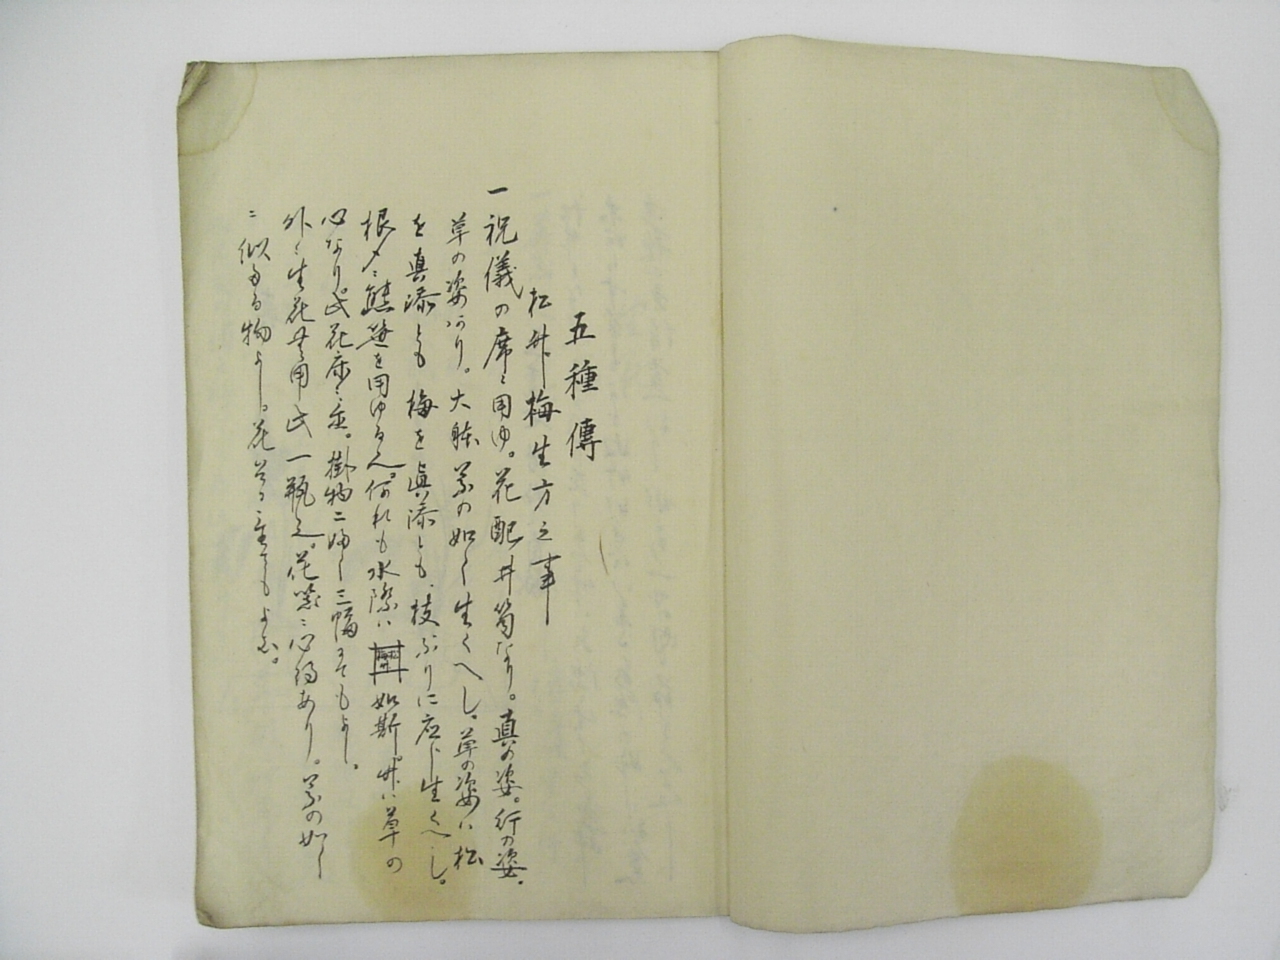 五種傳
松竹梅生方之事
一祝儀の席ニ用ゆ。花配井筒なり。真の姿。行の姿。
草の姿あり。大躰蒙の如く生くへし。草の姿ハ松
を真添とも梅を眞添とも、枝ぶりに応じ生くへし。
根〆ニ熊笹を用ゆる也。何れも水際ハ 如斯。竹ハ草の
心なり。此花床ニ 。掛物二幅 三幅 てもよし。
外ニ生花 用 此一瓶也。花 ニ心得あり。蒙の如し
ニ似たる物よし。花 てもよろし。